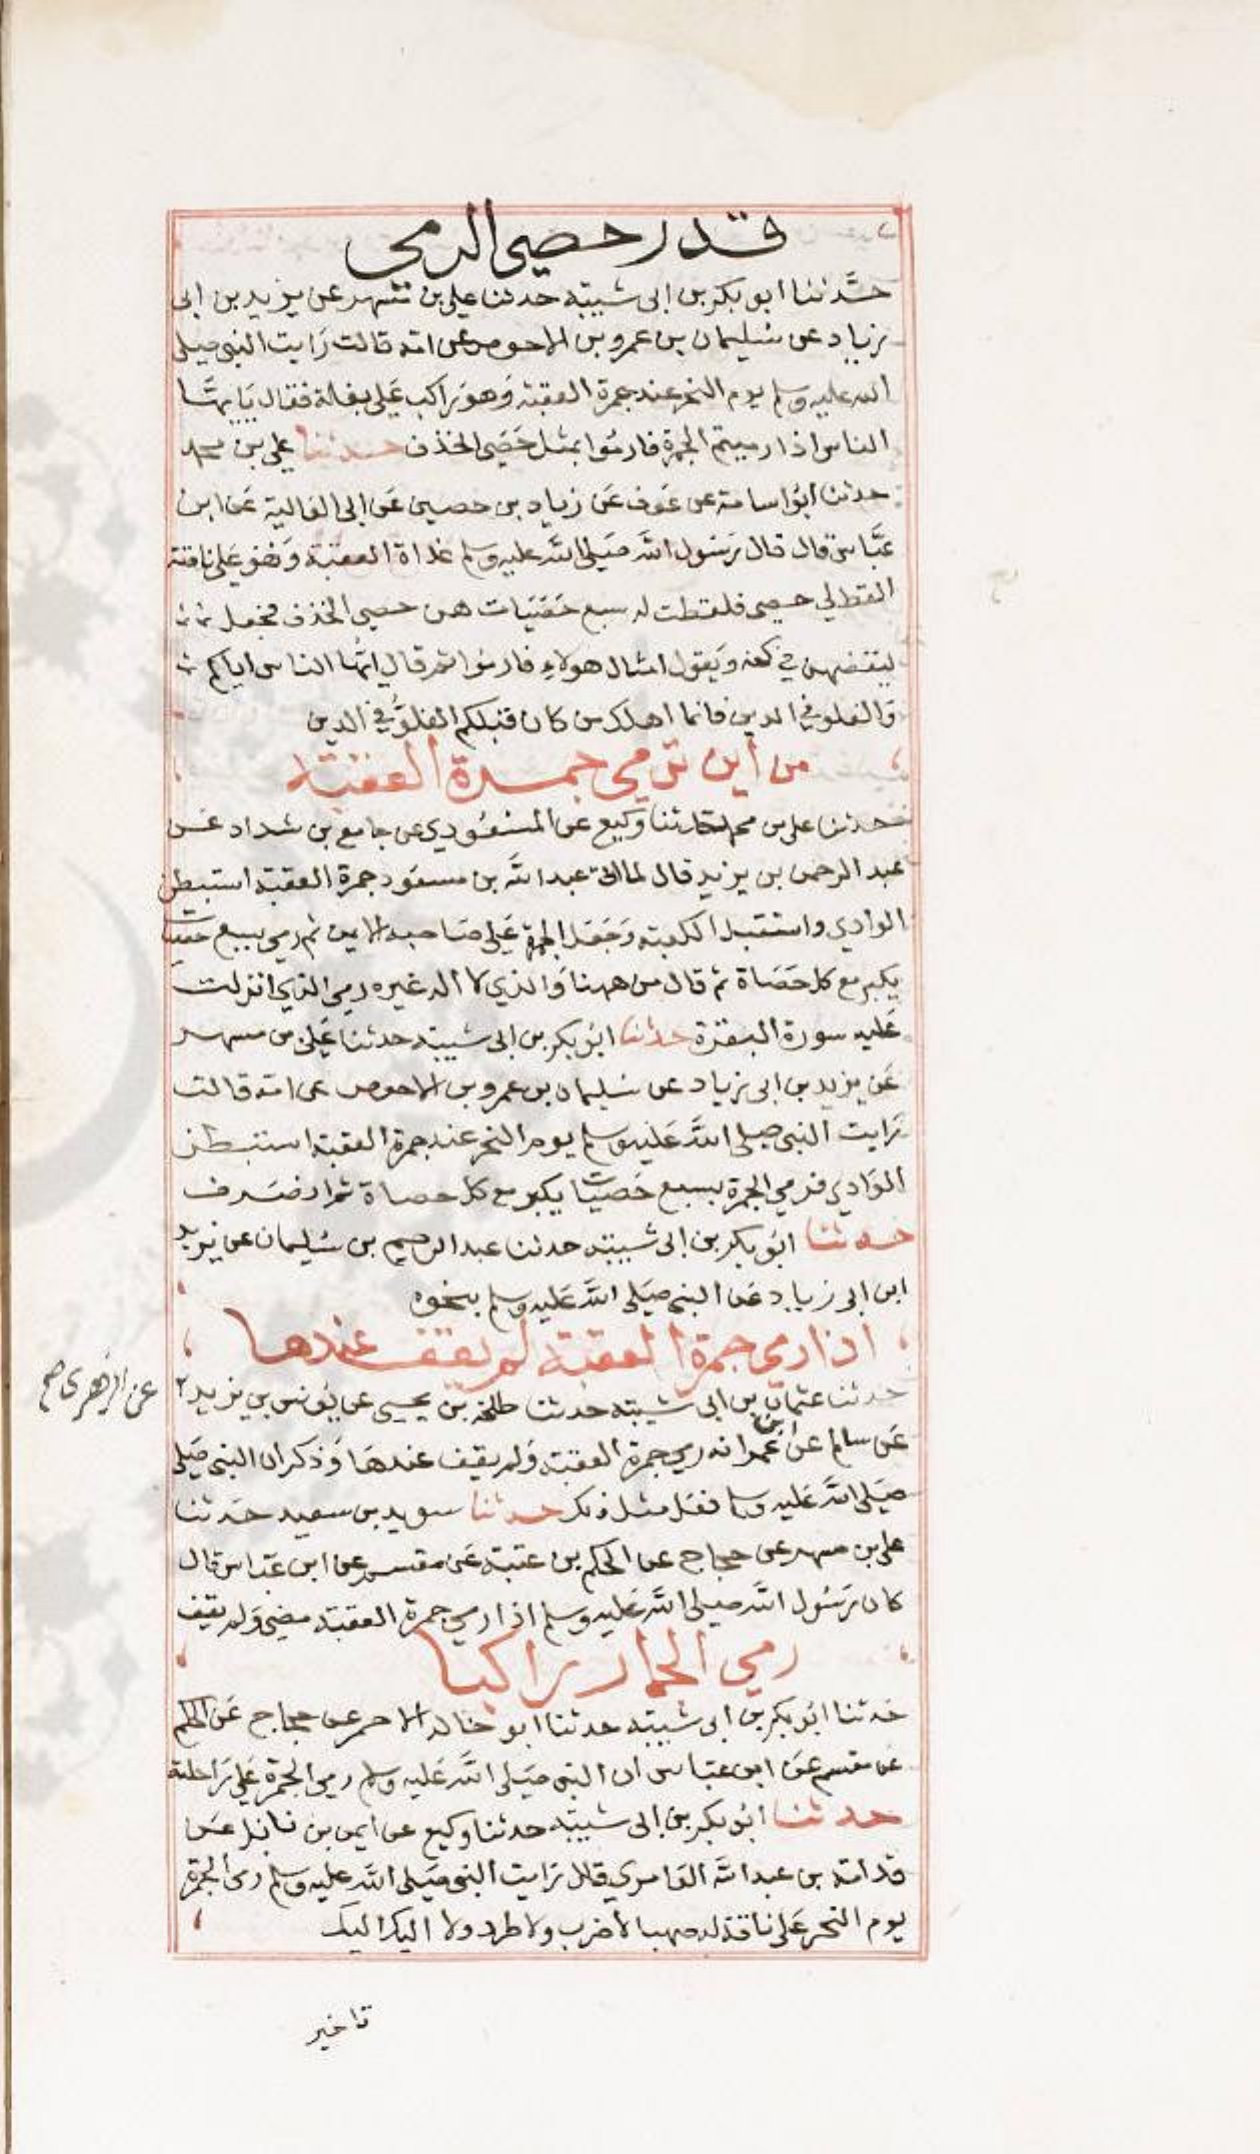 قدر حصى الرمي
حدثنا ابو بكر بن ابى شيبة حدثنا علي بن مسهر عن يزيد بن ابى
زياد عن سليمان بن عمرو بن الاحوص عن امه قالت رايت النبى صلى
الله عليه وسلم يوم النحر عند جمرة العقبة وهو راكب على بغلة فقال يايها
الناس اذا رميتم الجمرة فارموا بمثل حصى الخذف حدثنا علي بن محمد
حدثنا ابو اسامة عن عوف عن زياد بن حصين عن ابى العالية عن ابن
عباس قال قال رسول الله صلى الله عليه وسلم غداة العقبة وهو على ناقته
القط لي حصى فلقطت له سبع حصيات هن حصى الخذف فجعل
ينفضهن في كفه ويقول امثال هولاء فارموا ثم قال ايها الناس اياكم
والغلو في الدين فانما اهلك من كان قبلكم الغلو في الدين
من أين ترمي جمرة العقبة
حدثنا علي بن محمد حدثنا وكيع عن المسعودي عن جامع بن شداد عن
عبد الرحمن بن يزيد قال لما اتى عبد الله بن مسعود جمرة العقبة استبطن
الوادي واستقبل الكعبة وجعل الجمرة على حاجبه الايمن ثم رمى بسبع حصيات
يكبر مع كل حصاة ثم قال من ههنا والذي لا اله غيره رمى الذي انزلت
عليه سورة البقرة حدثنا ابو بكر بن ابى شيبة حدثنا علي بن مسهر
عن يزيد بن ابى زياد عن سليمان بن عمرو بن الاحوص عن امه قالت
رايت النبى صلى الله عليه وسلم يوم النحر عند جمرة العقبة استبطن
الوادي فرمى الجمرة بسبع حصيات يكبر مع كل حصاة ثم انصرف
حدثنا ابو بكر بن ابى شيبة حدثنا عبد الرحيم بن سليمان عن يزيد
ابن ابى زياد عن النبى صلى الله عليه وسلم بنحوه
اذا رمي جمرة العقبة لم يقف عندها
حدثنا عثمان بن ابى شيبة حدثنا طلحة بن يحيى عن يونس بن يزيد
عن الزهرى صح
عن سالم عن ابن عمر انه رمى جمرة العقبة ولم يقف عندها وذكر ان النبى صلى
صلى الله عليه وسلم فعل مثل ذلك حدثنا سويد بن سعيد حدثنا
علي بن مسهر عن حجاج عن الحكم بن عتيبة عن مقسم عن ابن عباس قال
كان رسول الله صلى الله عليه وسلم اذا رمى جمرة العقبة مضى ولم يقف
رمي الجمار راكبا
حدثنا ابو بكر بن ابى شيبة حدثنا ابو خالد الاحمر عن حجاج عن الحكم
عن مقسم عن ابن عباس ان النبى صلى الله عليه وسلم رمى الجمرة على راحلته
حدثنا ابو بكر بن ابى شيبة حدثنا وكيع عن ايمن بن نابل عن
قدامة بن عبد الله العامري قال رايت النبى صلى الله عليه وسلم رمى الجمرة
يوم النحر على ناقة له صهبا لا ضرب ولا طرد ولا اليك اليك
تاخير